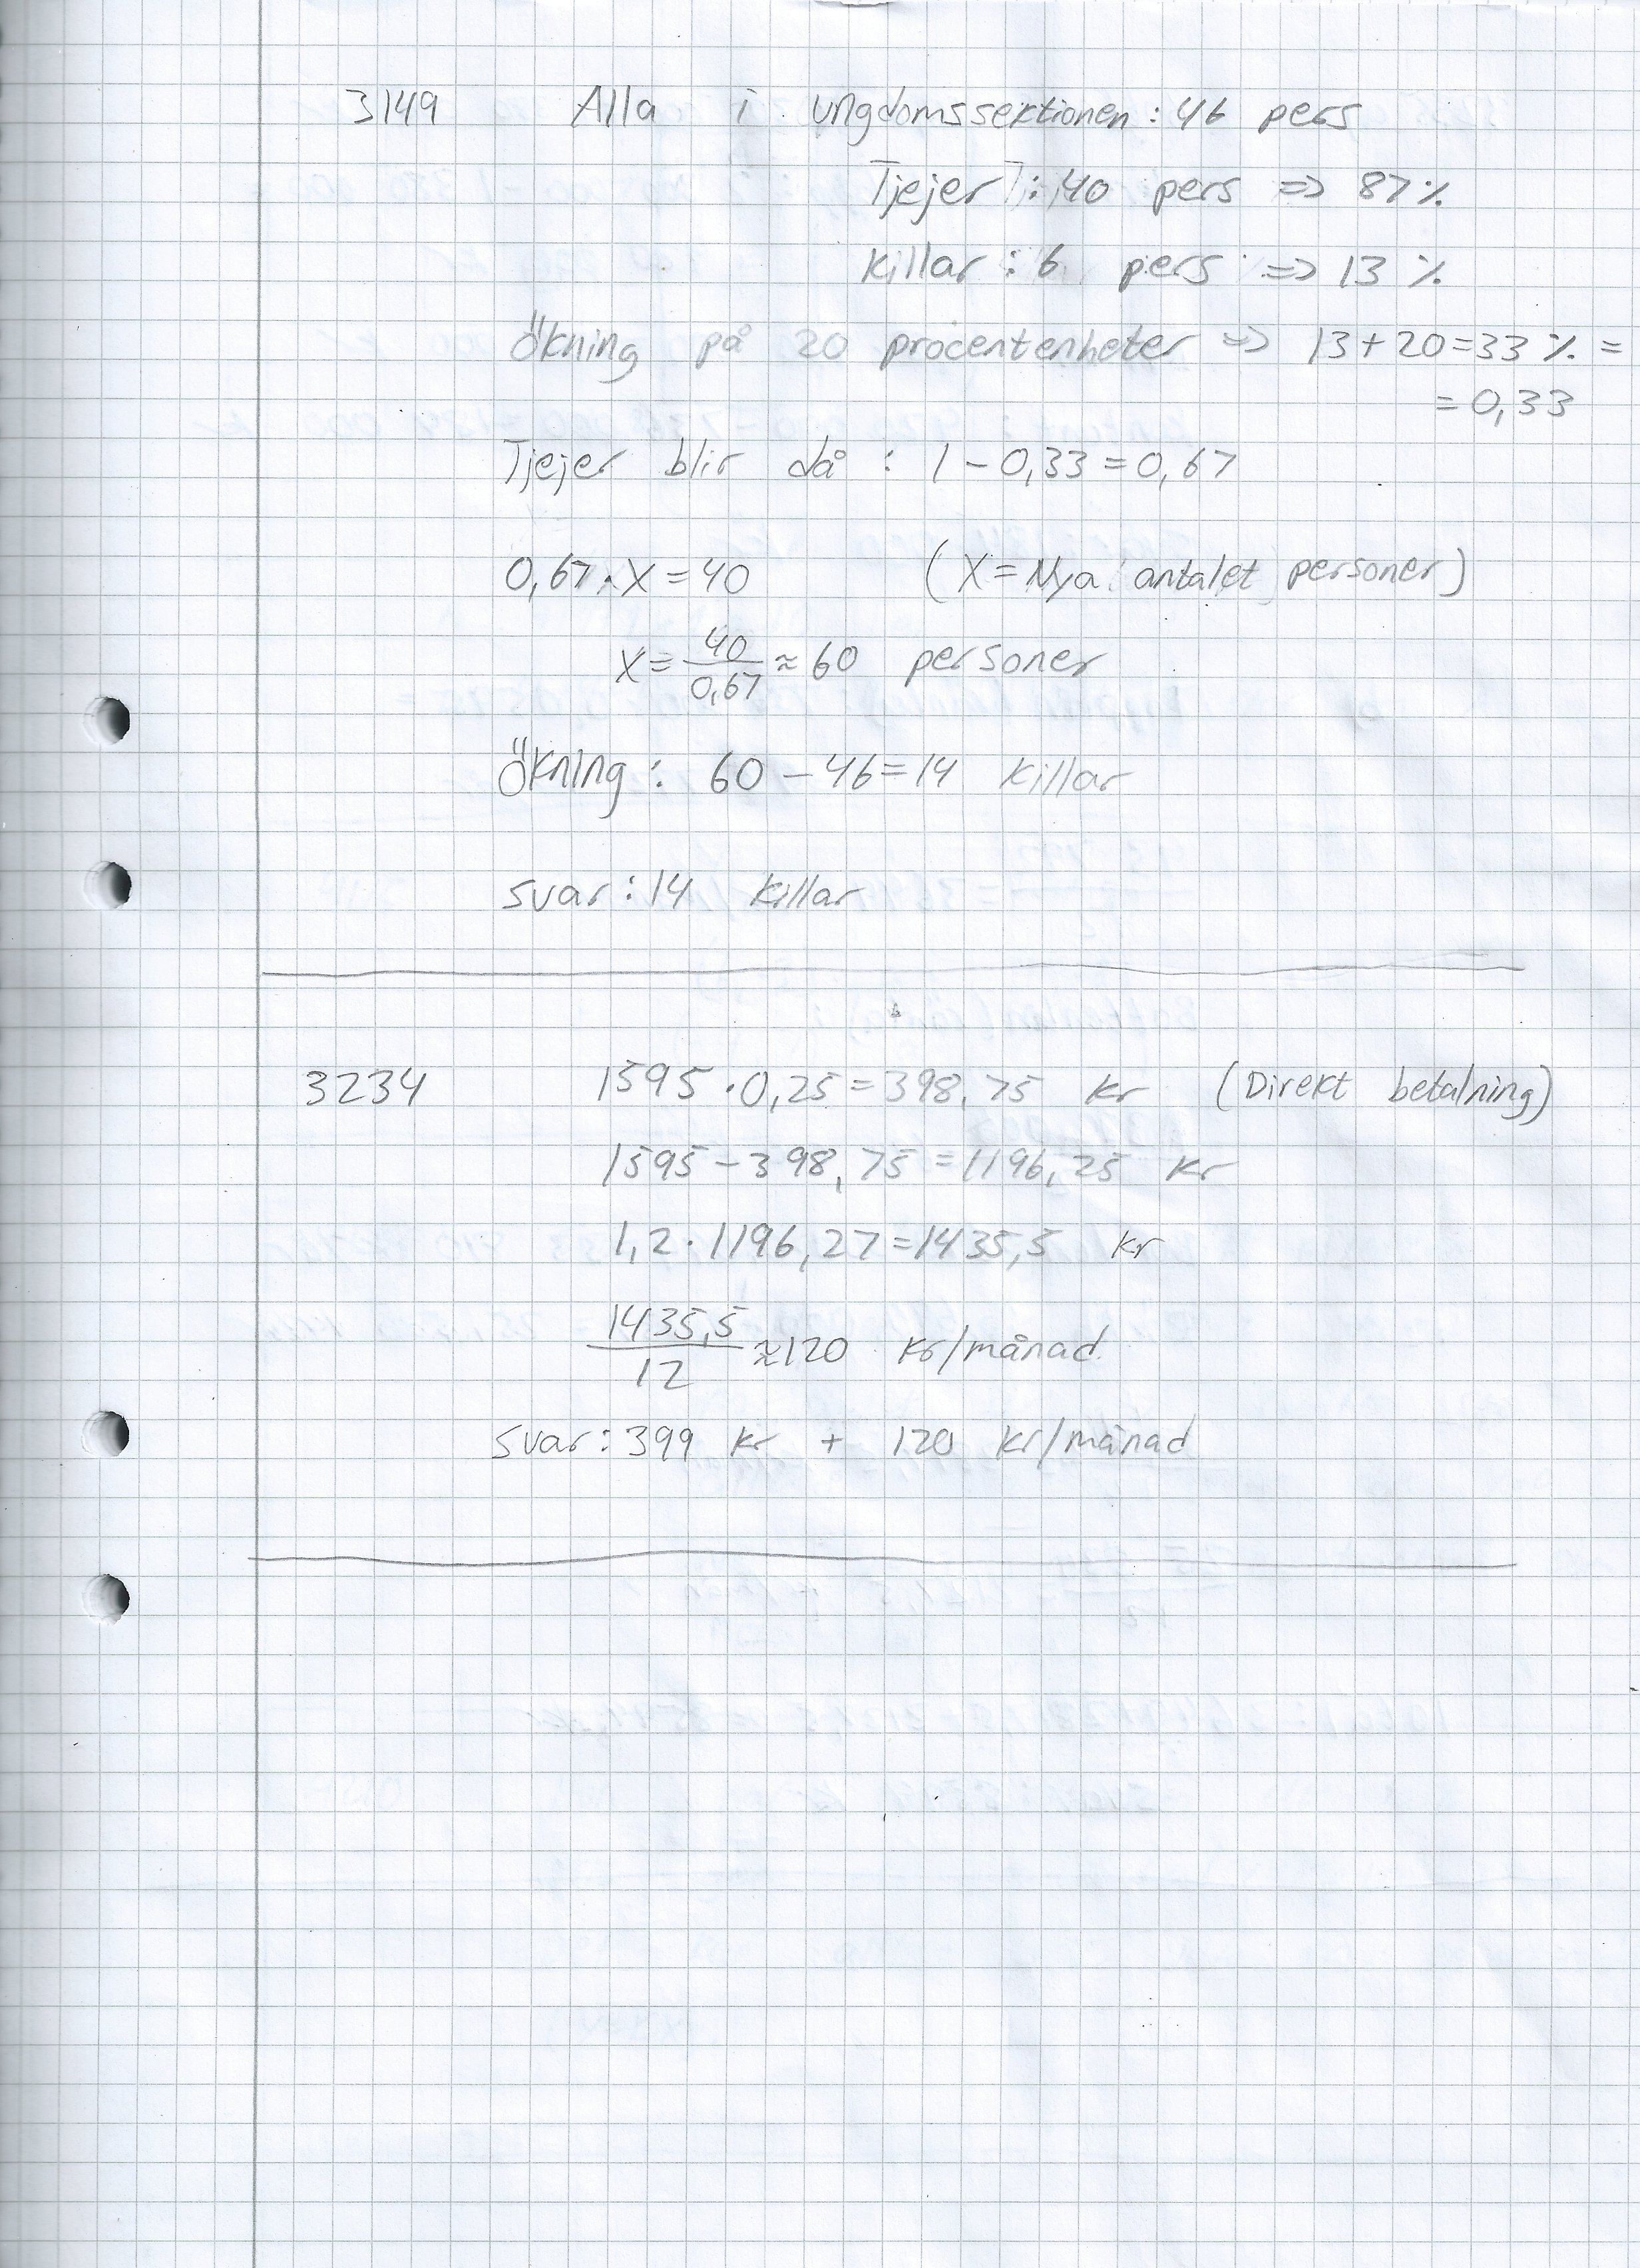 3149 Alla i ungdomssektionen : 46 pers
Tjejer : 40 pers => 87 %
Killar : 6 pers => 13 %
Ökning på 20 procentenheter => 13+20=33 % =
= 0,33
Tjejer blir då : 1 - 0,33 = 0,67
0,67 · X = 40 (X = Nya antalet personer)
X = 40/0,67 ≈ 60 personer
Ökning : 60 - 46 = 14 killar
svar : 14 killar
3234 1595 · 0,25 = 398,75 kr (Direkt betalning)
1595 - 398,75 = 1196,25 kr
1,2 · 1196,27 = 1435,5 kr
1435,5/12 ≈ 120 kr/månad
svar : 399 kr + 120 kr/månad